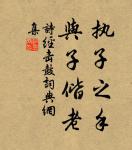 执子之手
與子偕老
詩經击鼓詞典網
集